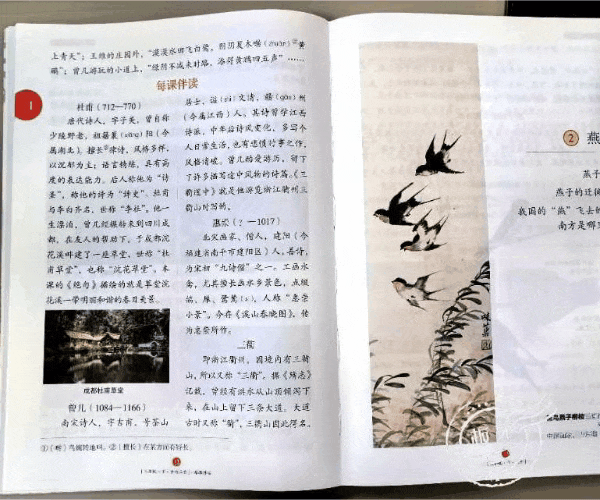 上青天”；王维的庄园外，“漠漠水田飞白鹭，阴阴夏木啭（zhuàn）①黄
鹂”；曾几游玩的小道上，“绿阴不减来时路，添得黄鹂四五声”……
每课伴读
1
杜甫（712—770）
唐代诗人，字子美，曾自称
少陵野老，祖籍襄（xiāng）阳（今
属湖北）。擅长②律诗，风格多样，
以沉郁为主；语言精练，具有高
度的表达能力。后人称他为“诗
圣”，称他的诗为“诗史”。杜甫
与李白齐名，世称“李杜”，他一
生漂泊，曾几经辗转来到四川成
都，在友人的帮助下，于成都浣
花溪畔建了一座草堂，世称“杜
甫草堂”，也称“浣花草堂”。本
课的《绝句》描绘的就是草堂浣
花溪一带明丽和谐的春日美景。
成都杜甫草堂
曾几（1084—1166）
南宋诗人，字吉甫，号茶山
居士，谥（shì）文清，赣（gàn）州
（今属江西）人。其诗曾学江西
诗派，中年后诗风变化，多写个
人日常生活，也有悲愤时事之作，
风格清峻。曾几酷爱游历，留下
了许多描写途中风物的诗篇。《三
衢道中》就是他游览浙江衢州三
衢山时写的。
惠崇（？—1017）
北宋画家、僧人，建阳（今
福建省南平市建阳区）人。善诗，
为宋初“九诗僧”之一。工画水
禽，尤其擅长画水乡景色，点缀
鹅、雁、鹭鸶（sī），人称“惠崇
小景”。今存《溪山春晓图》，传
为惠崇所作。
三衢
即浙江衢州，因境内有三衢
山，所以又称“三衢”。据《殊志》
记载，曾经有洪水从山顶倾泻下
来，在山上留下三条大道。大道
古时又称“衢”，三衢山因此得名。
①〔啭〕鸟婉转地叫。②〔擅长〕在某方面有特长。
② 燕
燕子
燕子的迁徙
我国的“燕”飞去的
南方是哪里